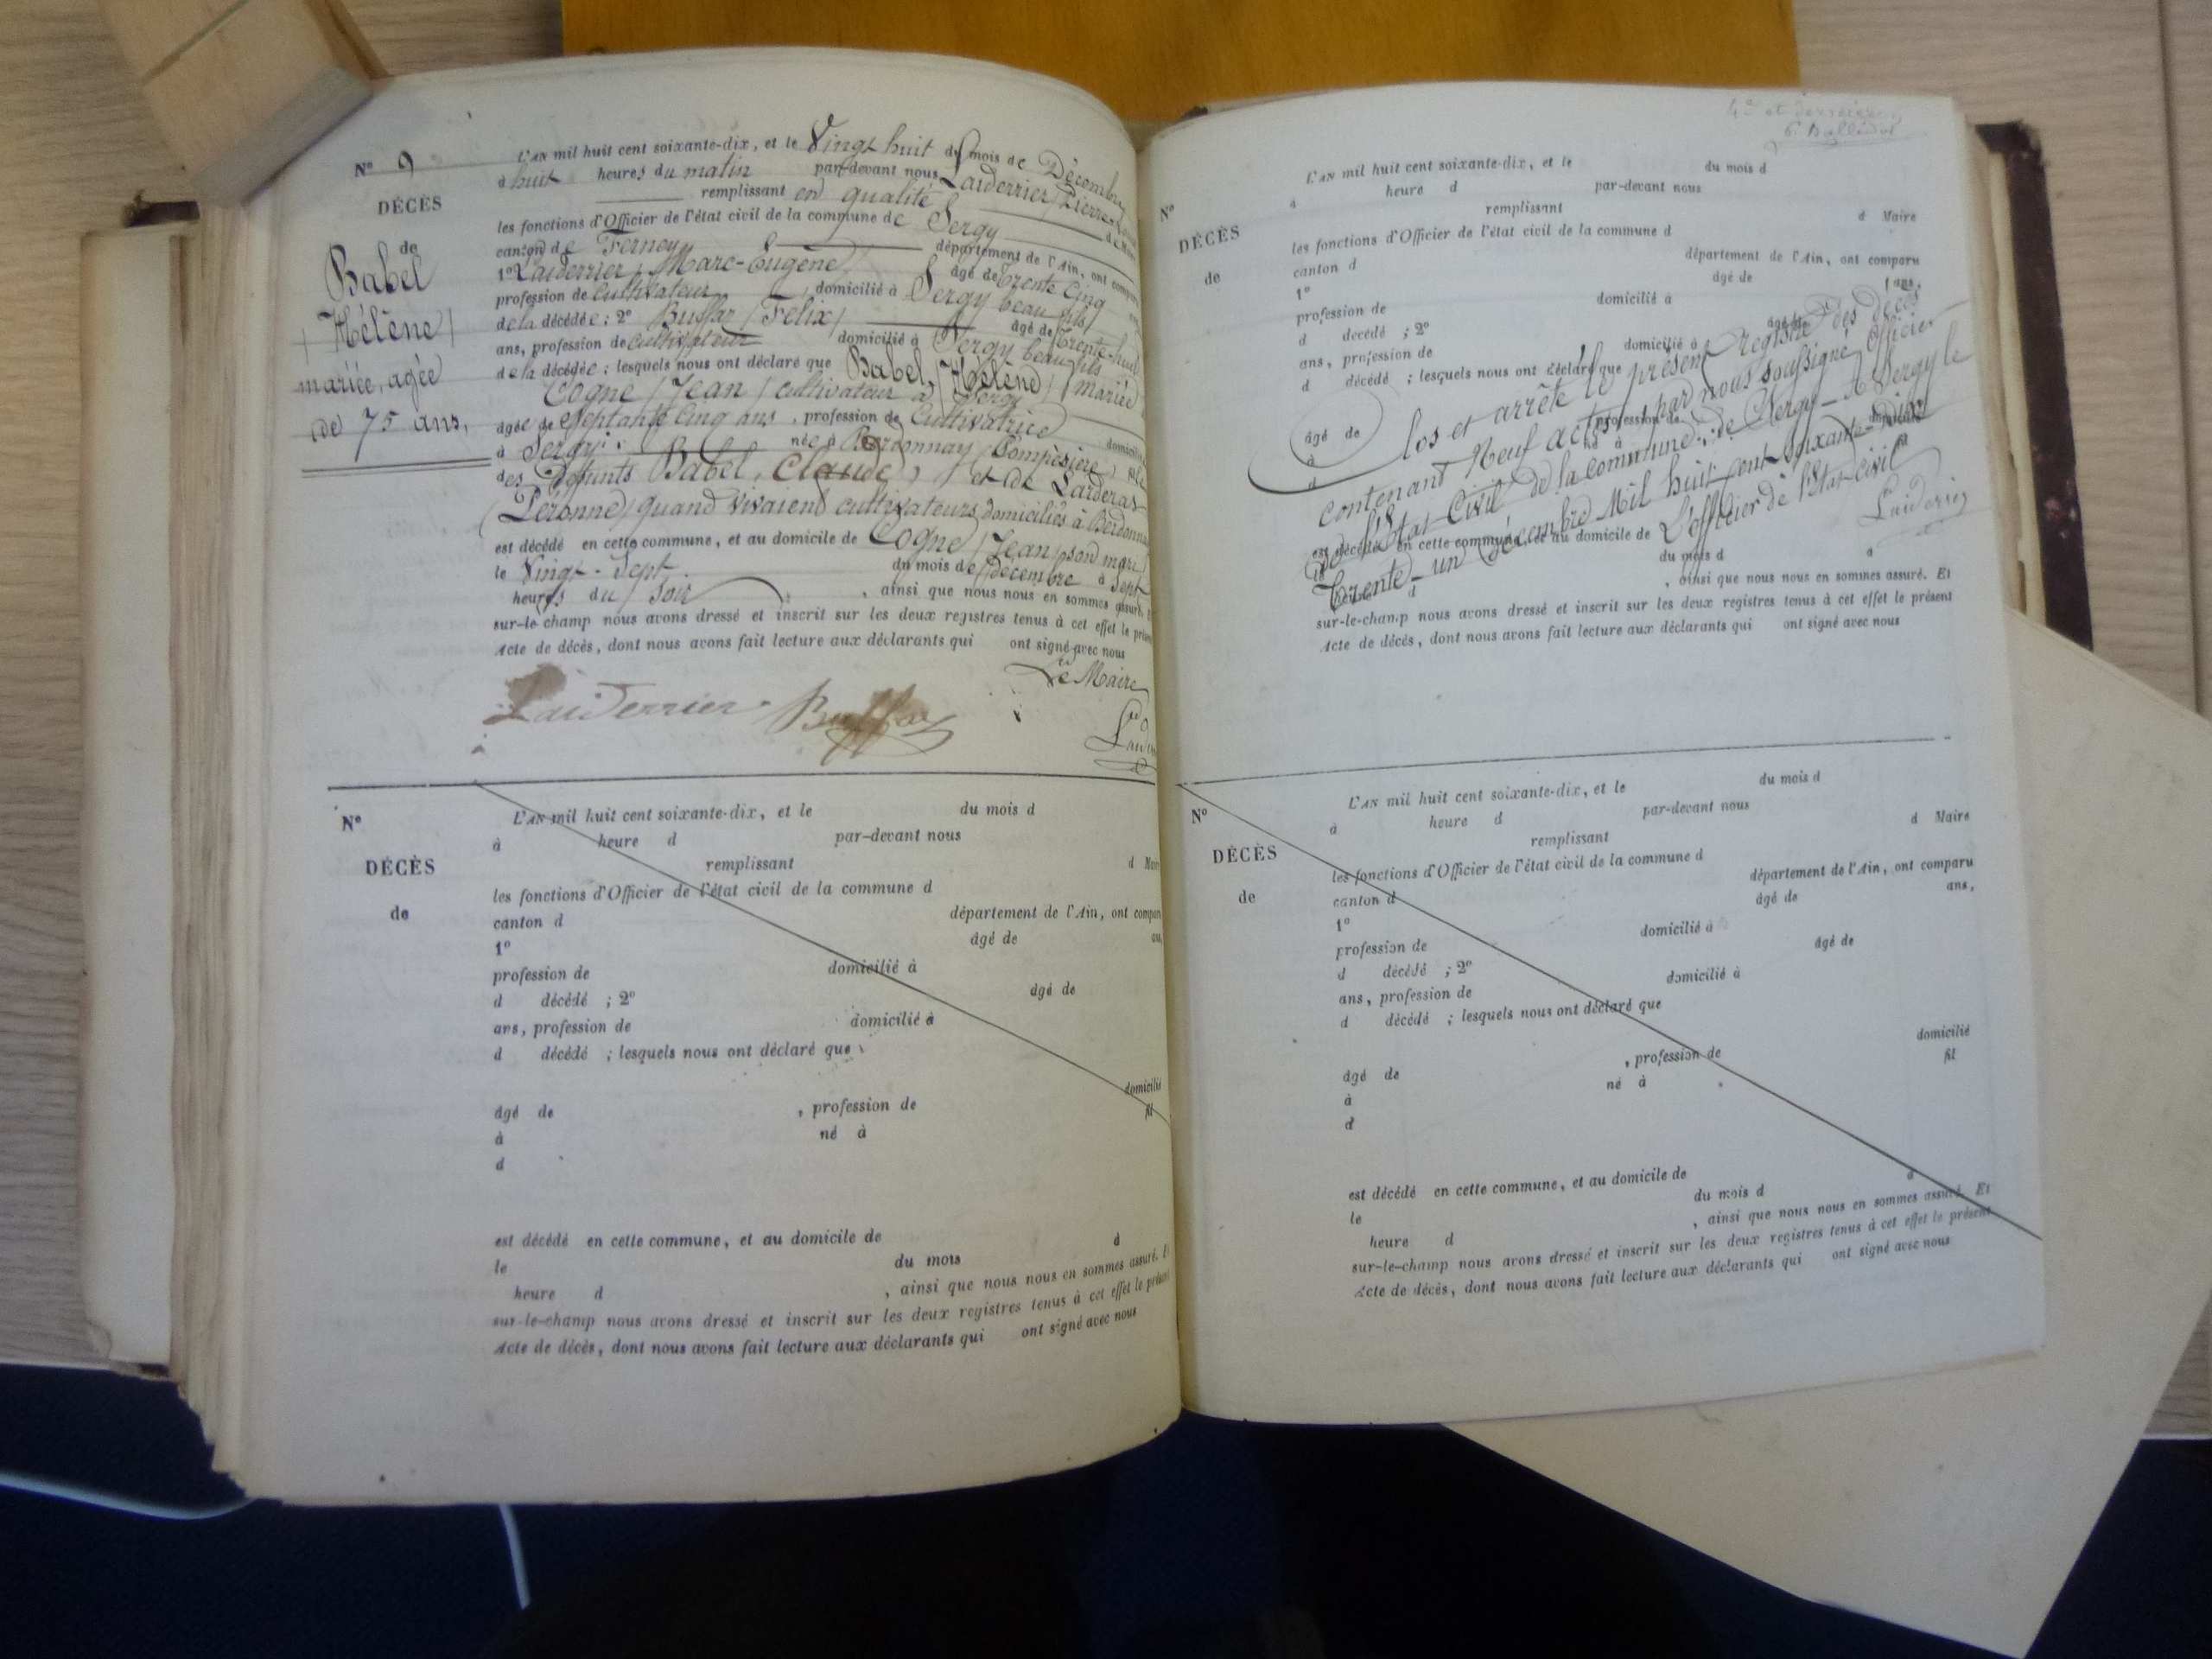 N° 9
DÉCÈS
de
Babel
/ Hélène /
mariée, agée
de 75 ans.
L'AN mil huit cent soixante-dix, et le Vingt huit du mois de Décembre
à huit heures du matin par-devant nous Laiderrier / Pierre-
remplissant en qualité de Maire
les fonctions d'Officier de l'état civil de la commune de Sergy
canton de Ferney département de l'Ain, ont comparu
1° Laiderrier / Marc-Eugène / âgé de trente cinq
profession de Cultivateur, domicilié à Sergy beau fils
de la décédée; 2° Buffar / Félix / âgé de trente-huit
ans, profession de cultivateur domicilié à Sergy beau fils
de la décédée; lesquels nous ont déclaré que Babel / Hélène / mariée
Cogne / Jean / cultivateur à Sergy
âgée de Septante Cinq ans, profession de Cultivatrice domicilié
à Sergy; née à Berdonnay / Compésière, fille
des défunts Babel, Claude, et de Laideras
(Péronne) quand vivaient cultivateurs domiciliés à Berdonnay
est décédé en cette commune, et au domicile de Cogne / Jean / son mari
le Vingt-Sept du mois de décembre à Sept
heures du Soir, ainsi que nous nous en sommes assuré. Et
sur-le-champ nous avons dressé et inscrit sur les deux registres tenus à cet effet le présent
Acte de décès, dont nous avons fait lecture aux déclarants qui ont signé avec nous
Le Maire
Laiderrier Buffar
N°
DÉCÈS
de
L'AN mil huit cent soixante-dix, et le du mois d
à heure d par-devant nous
remplissant d Maire
les fonctions d'Officier de l'état civil de la commune d
canton d département de l'Ain, ont comparu
1° âgé de ans,
profession de domicilié à
d décédé ; 2° âgé de
ans, profession de domicilié à
d décédé ; lesquels nous ont déclaré que
domicilié
âgé de , profession de fil
à né à
d
est décédé en cette commune, et au domicile de
le du mois à
heure d , ainsi que nous nous en sommes assuré. Et
sur-le-champ nous avons dressé et inscrit sur les deux registres tenus à cet effet le présent
Acte de décès, dont nous avons fait lecture aux déclarants qui ont signé avec nous
4e et dernière
N°
DÉCÈS
de
L'AN mil huit cent soixante-dix, et le du mois d
à heure d par-devant nous
remplissant d Maire
les fonctions d'Officier de l'état civil de la commune d
canton d département de l'Ain, ont comparu
1° âgé de ans,
profession de domicilié à
d décédé ; 2° âgé de
ans, profession de domicilié à
d décédé ; lesquels nous ont déclaré que
âgé de , profession de domicilié
à né à
d
Clos et arrêté le présent registre des décès
contenant Neuf actes par nous soussigné Officier
de l'Etat-Civil de la commune de Sergy - A Sergy le
Trente-un décembre Mil huit cent Soixante-dix
L'officier de l'Etat-Civil
Laiderrier
est décédé en cette commune, et au domicile de
le du mois d à
heure d , ainsi que nous nous en sommes assuré. Et
sur-le-champ nous avons dressé et inscrit sur les deux registres tenus à cet effet le présent
Acte de décès, dont nous avons fait lecture aux déclarants qui ont signé avec nous
N°
DÉCÈS
de
L'AN mil huit cent soixante-dix, et le du mois d
à heure d par-devant nous
remplissant d Maire
les fonctions d'Officier de l'état civil de la commune d
canton d département de l'Ain, ont comparu
1° âgé de ans,
profession de domicilié à
d décédé ; 2° âgé de
ans, profession de domicilié à
d décédé ; lesquels nous ont déclaré que
domicilié
âgé de , profession de fil
à né à
d
est décédé en cette commune, et au domicile de
le du mois d à
heure d , ainsi que nous nous en sommes assuré. Et
sur-le-champ nous avons dressé et inscrit sur les deux registres tenus à cet effet le présent
Acte de décès, dont nous avons fait lecture aux déclarants qui ont signé avec nous